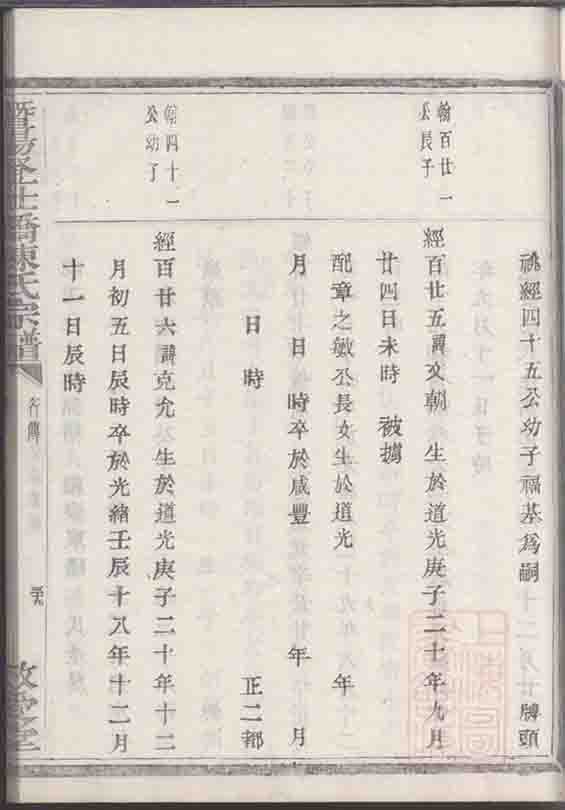 祧經四十五公幼子福基爲嗣 牌頭
翰百廿一
公長子
經百廿五諱文朝 生於道光庚子二十年九月
廿四日未時 被擄
配章之敏公長女生於道光 年
月 日 時卒於咸豐 年 月
日 時 正二都
翰四十一
公幼子
經百廿六諱克允 生於道光庚子二十年十二
月初五日辰時卒於光緒壬辰十八年十二月
十一日辰時
暨陽 橋陳氏宗譜
行傳